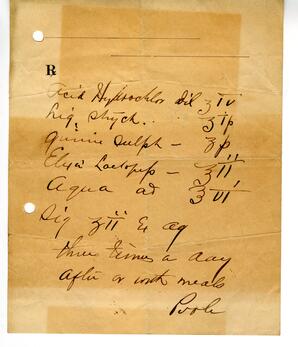 ℞
Acid Hydrochlor Dil ʒ iv
Liq. Strych.. ʒ i
Quinine Sulph —
Elix Lactopep — ℥ ii
Aqua ad ℥ vi
Sig ʒ ii Ex aq
three times a day
after or with meals
Poole